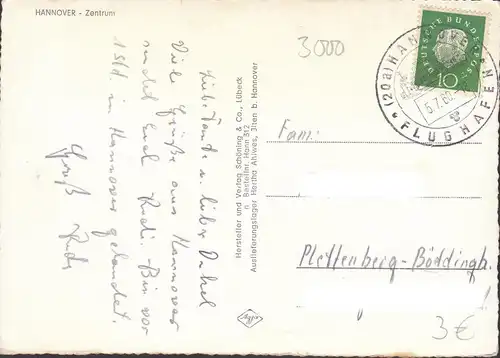 HANNOVER - Zentrum
3000
Liebe Tante u. lieber Onkel
Viele Grüße aus Hannover
sendet Euch Rudi. Bin vor
1 Std. in Hannover gelandet.
Gruß Rudi
Hersteller und Verlag Schöning & Co., Lübeck
Bestellnr. Hann 512
Auslieferungslager Hertha Ahlwes, Ilten b. Hannover
DEUTSCHE BUNDESPOST
10
(20a) HANNOVER
5.7.60
FLUGHAFEN
Fam.
Plettenberg-Böddingh.
3€